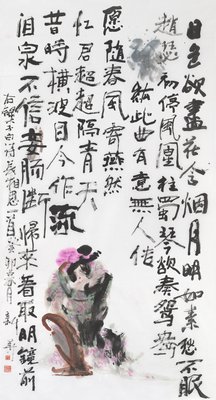 日色欲盡花含烟月明如素愁不眠
趙瑟初停鳳凰柱蜀琴欲奏鴛鴦
絃此曲有意無人传
愿随春風寄燕然
忆君迢迢隔青天
昔時橫波目今作流
泪泉不信妾腸斷歸來看取明鏡前
右録李白詩長相思一首